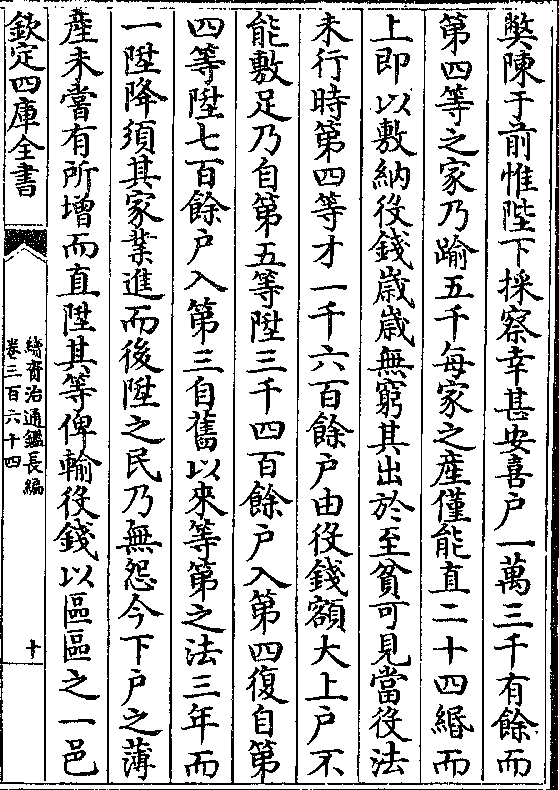 弊陳于前惟陛下採察幸甚安喜户一萬三千有餘而
第四等之家乃踰五千每家之産僅能直二十四緡而
上即以敷納役錢歳歳無窮其出於至貧可見當役法
未行時第四等才一千六百餘户由役錢額大上户不
能敷足乃自第五等陞三千四百餘户入第四復自第
四等陞七百餘户入第三自舊以來等第之法三年而
一陞降須其家業進而後陞之民乃無怨今下户之薄
產未嘗有所増而直陞其等俾輸役錢以區區之一邑
欽定四庫全書
續資治通鑑長編
卷三百六十四
十